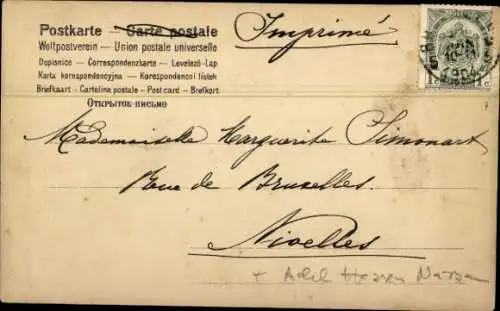 Postkarte - Carte postale
Weltpostverein - Union postale universelle
Dopisnice - Correspondenzkarte - Levelező-Lap
Karta korespondencyjna - Korespondencni listek
Briefkaart - Cartolina postale - Postcard - Brefkort
Открытое-письмо
Imprimé
1904
Mademoiselle Marguerite Simonart
Rue de Bruxelles.
Nivelles